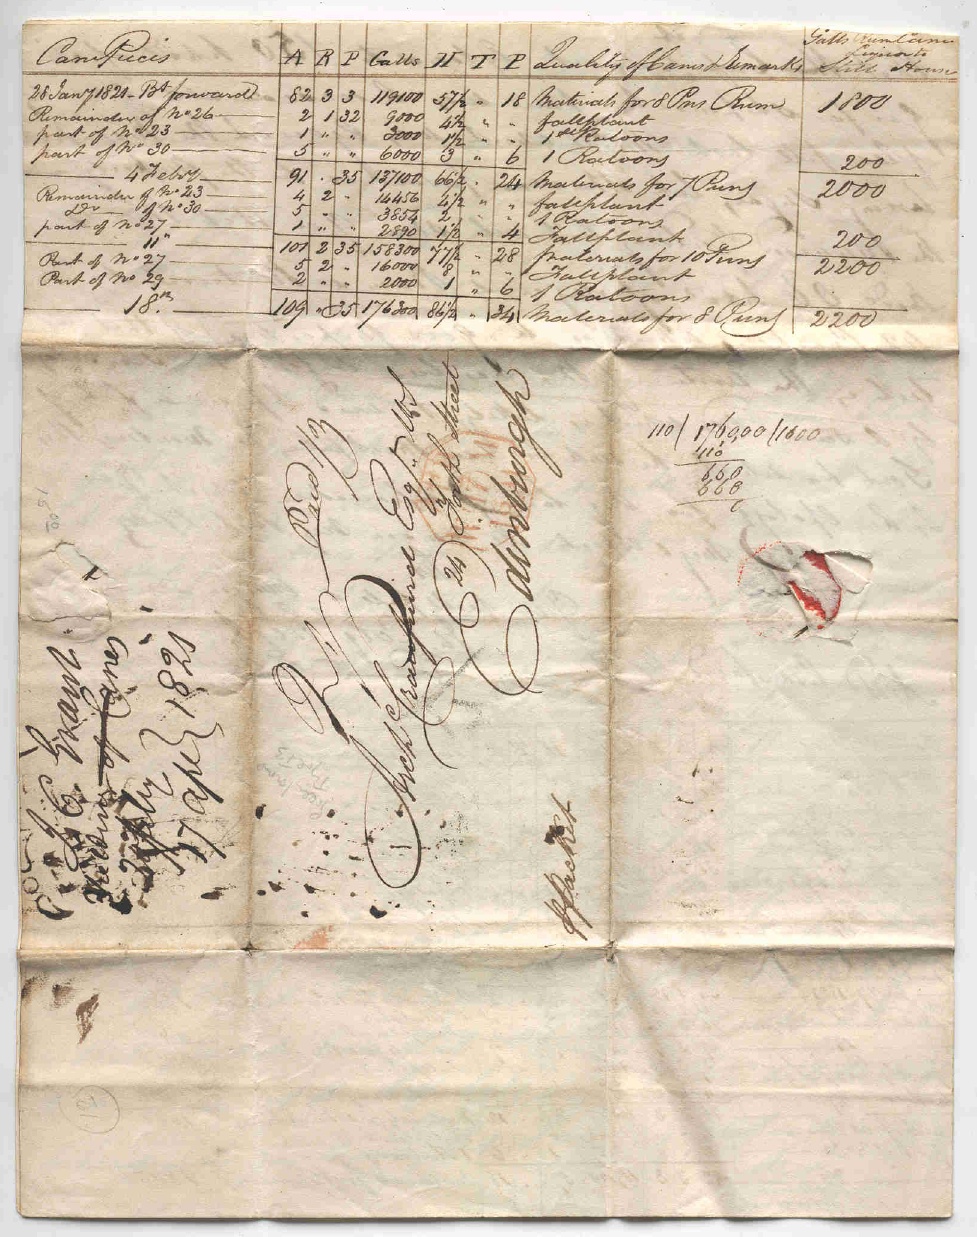 Cane Pieces A R P Galls H T P Quality of Canes & Remarks Galls Rum Cane Liquor to Still House
28 Jany 1821 - Bt forward 82 3 3 119100 57½ " 18 Materials for 8 Pns Rum 1800
Remainder of No 26 2 1 32 9000 4½ " " fallplant
part of No 23 1 " " 3000 1½ " " 1st Ratoons
part of No 30 5 " " 6000 3 " 6 1 Ratoons 200
4 Feby 91 . 35 137100 66½ . 24 Materials for 7 Puns 2000
Remainder of No 23 4 2 " 14456 4½ " " fallplant
Do of No 30 5 " " 3854 2 " 1 Ratoons
part of No 27 1 " " 2890 1½ " 4 Fallplant 200
11" 101 2 35 158300 77½ . 28 Materials for 10 Puns 2200
Part of No 27 5 2 " 16000 8 " " Fallplant
Part of No 29 2 " " 2000 1 " 6 1 Ratoons
18th 109 " 35 176300 86½ " 34 Materials for 8 Puns 2200
Paid 1/3
Arch Crawfuird Esqr WS
24 York Street
Edinburgh
pPacket
110/ 176000 /1600
110
660
660
0
J C Grant
of Canes
17 Apl 1821